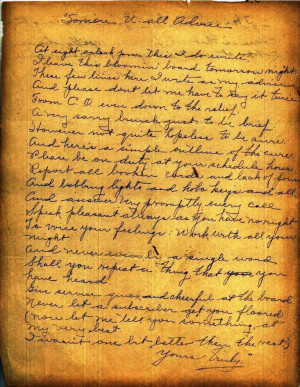 "Somers U-all Advice"
At eight oclock pm this I do write,
I leave this bloomin' board tomorrow night
These few lines here I write as my advice
And please don't let me have to say it twice
From C.O. even down to the relief
A very sorry bunch just to be brief
However not quite hopeless to be sure
And here's a simple outline of the cure.
Please be on duty at your schedule hour
Report all broken cords and lack of power
And lotting lights and hobo keys and all
And answer very promptly every call
Speak pleasant always as you have no right
To voice your feelings. Work with all your
might
And never a single word
Shall you repeat a thing that you
have heard
Give service and cheerful at the board
Never let a subscriber get you floored
(now let me tell you something, at
my very best
I wasn't one bit better than the rest)
Yours Truly,"